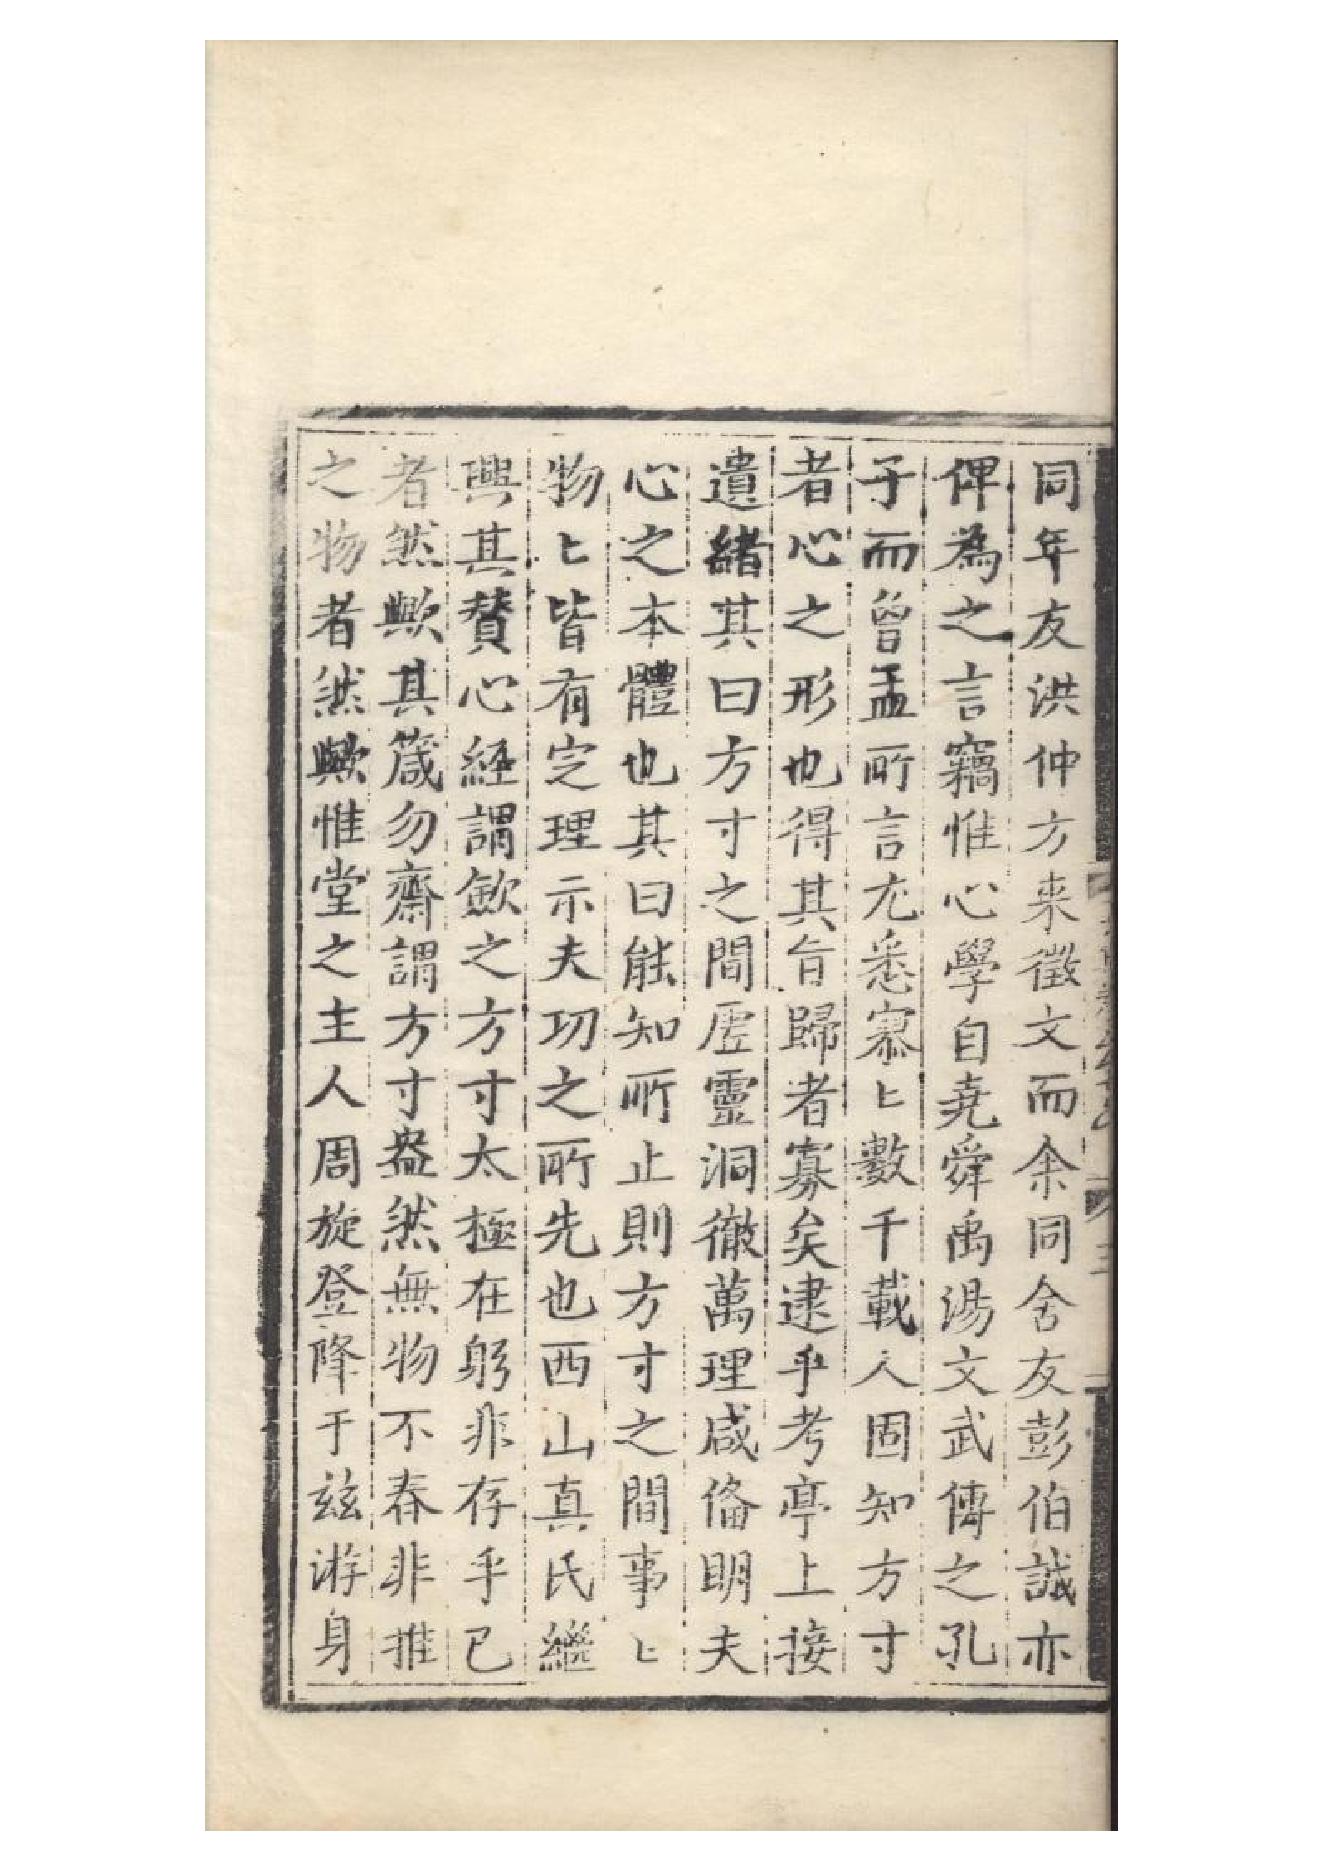 同年友洪仲方来徵文而余同舍友彭伯誠亦
俾為之言竊惟心學自尭舜禹湯文武傳之孔
子而曾孟所言尤悉寥〻數千載人固知方寸
者心之形也得其旨歸者寡矣逮乎考亭上接
遺緒其曰方寸之間虗靈洞徹萬理咸俻明夫
心之本體也其曰能知所止則方寸之間事〻
物〻皆有㝎理示夫功之所先也西山真氏繼
興其賛心經謂歛之方寸太極在躬非存乎已
者然歟其箴勿齋謂方寸盎然無物不春非推
之物者然歟惟堂之主人周旋登降于兹游身